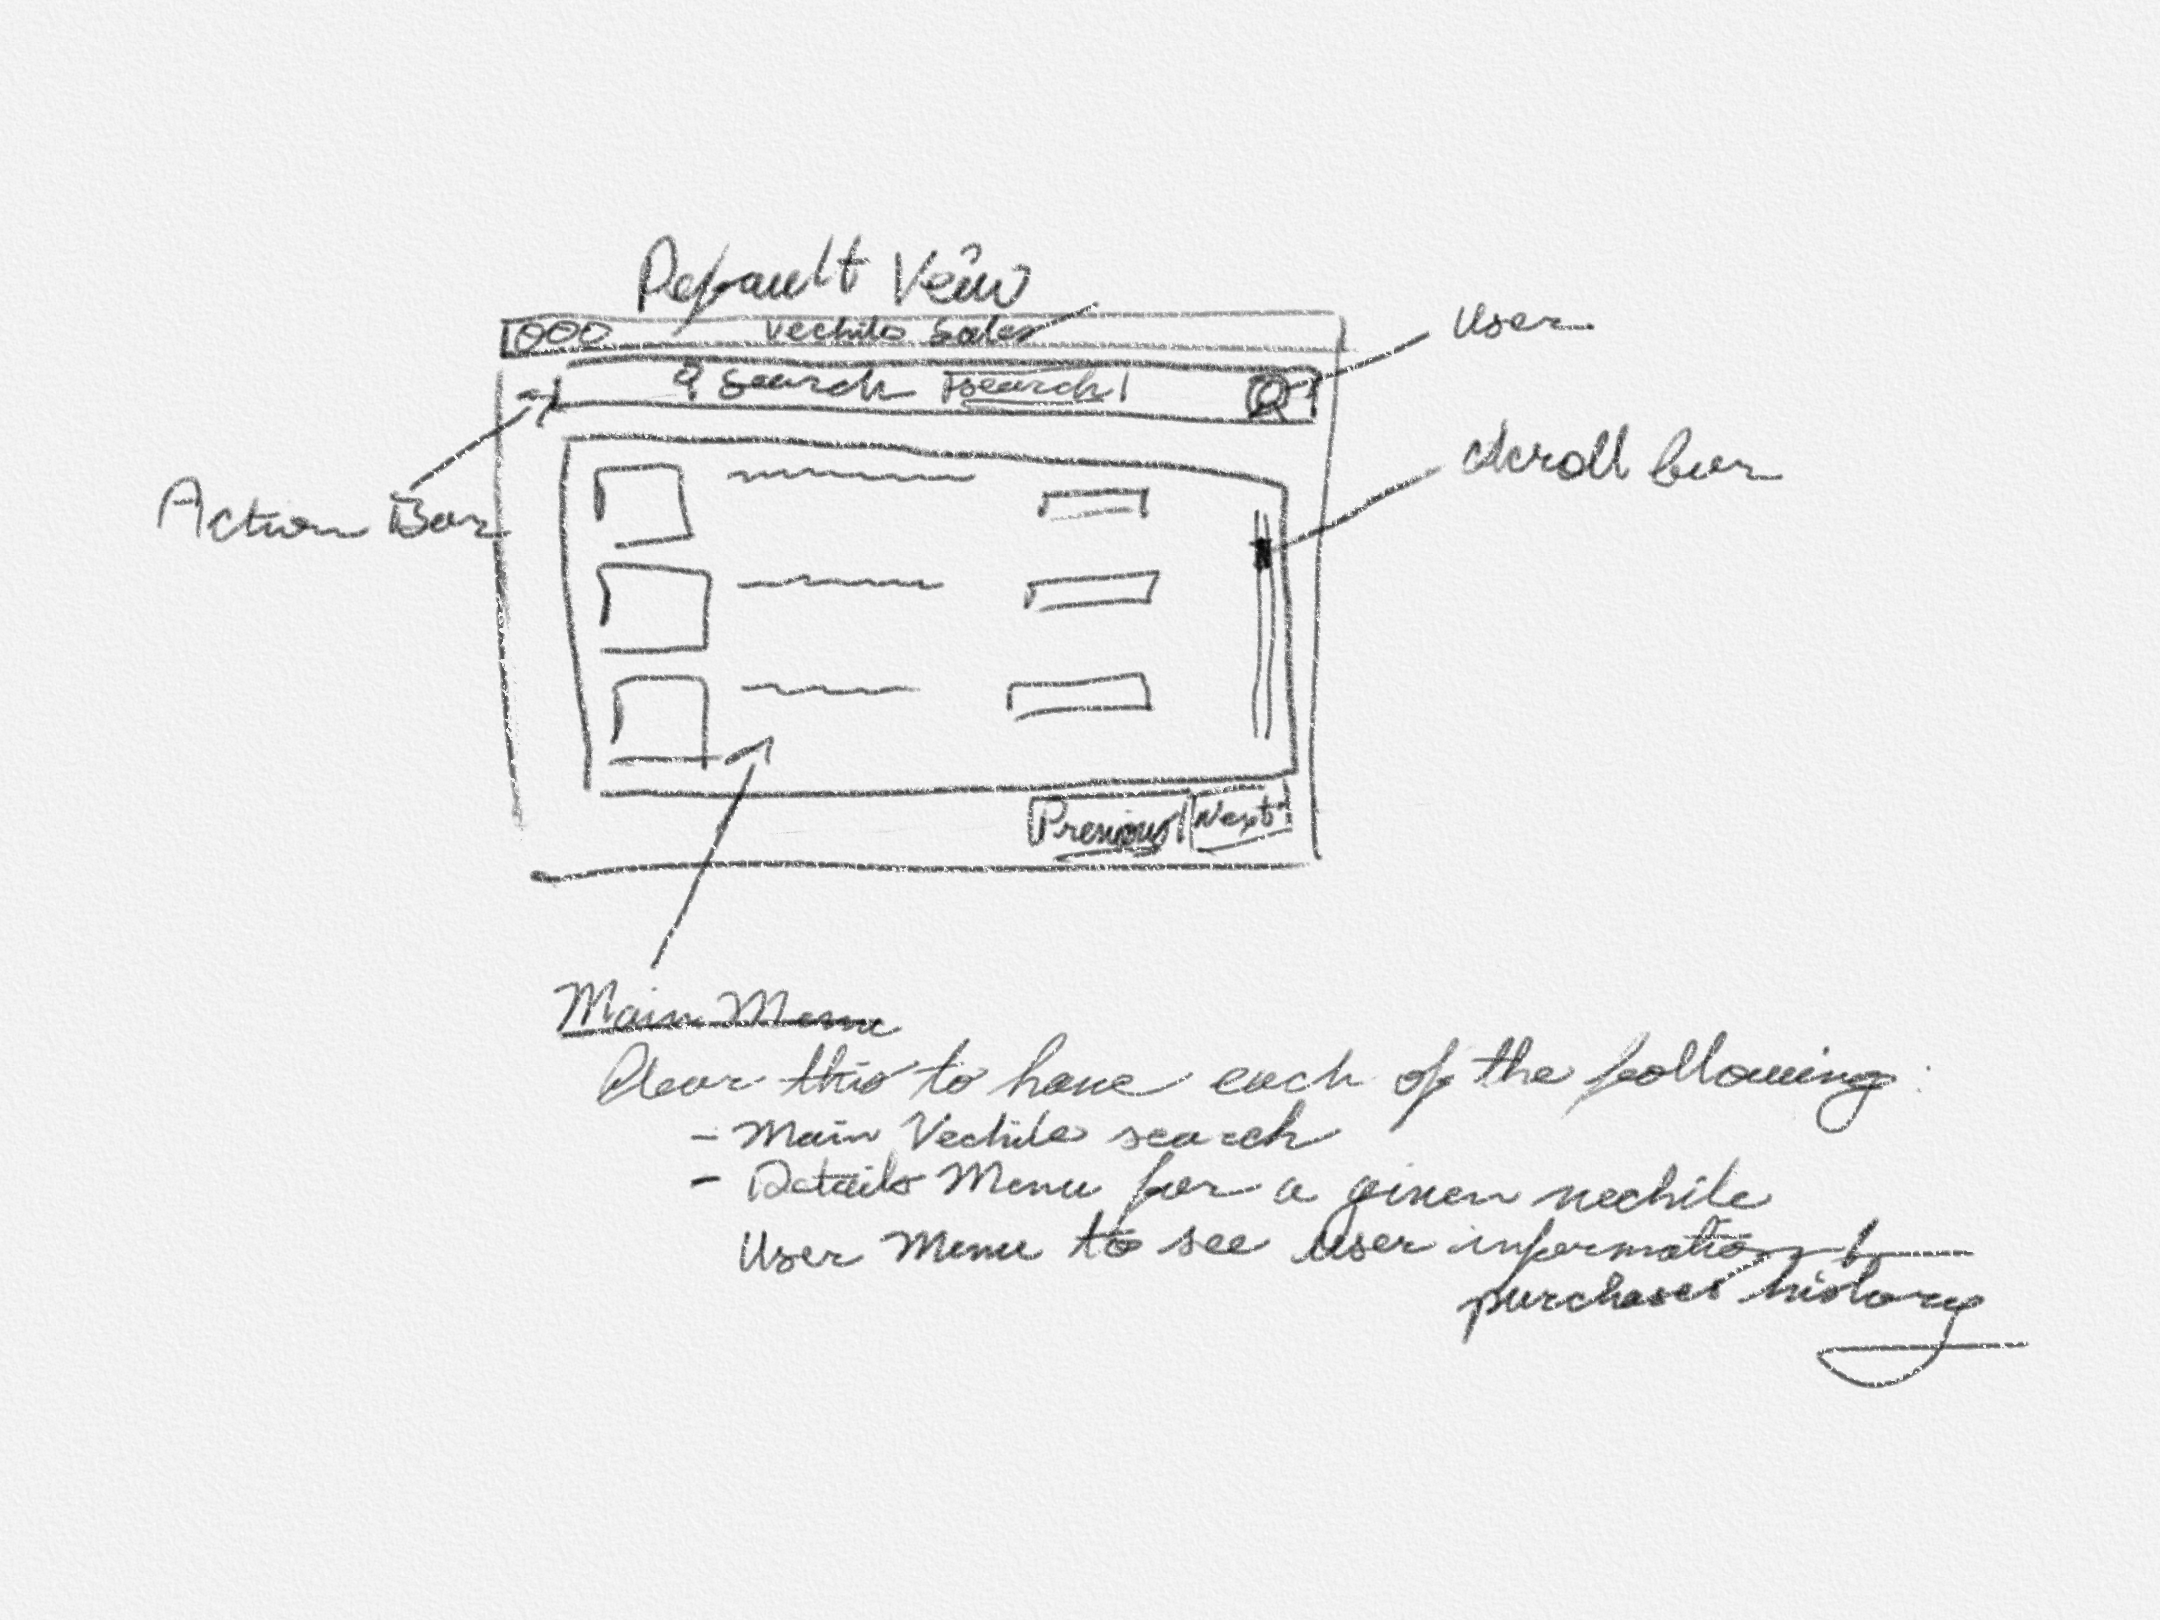 Default Veiw
Vechile Sales
User
Search
Search
Scroll bar
Action Bar
Previous
Next
Main Menu
this to have each of the following:
- Main Vechile search
- Details Menu for a given vechile
User Menu to see user information &
purchases history